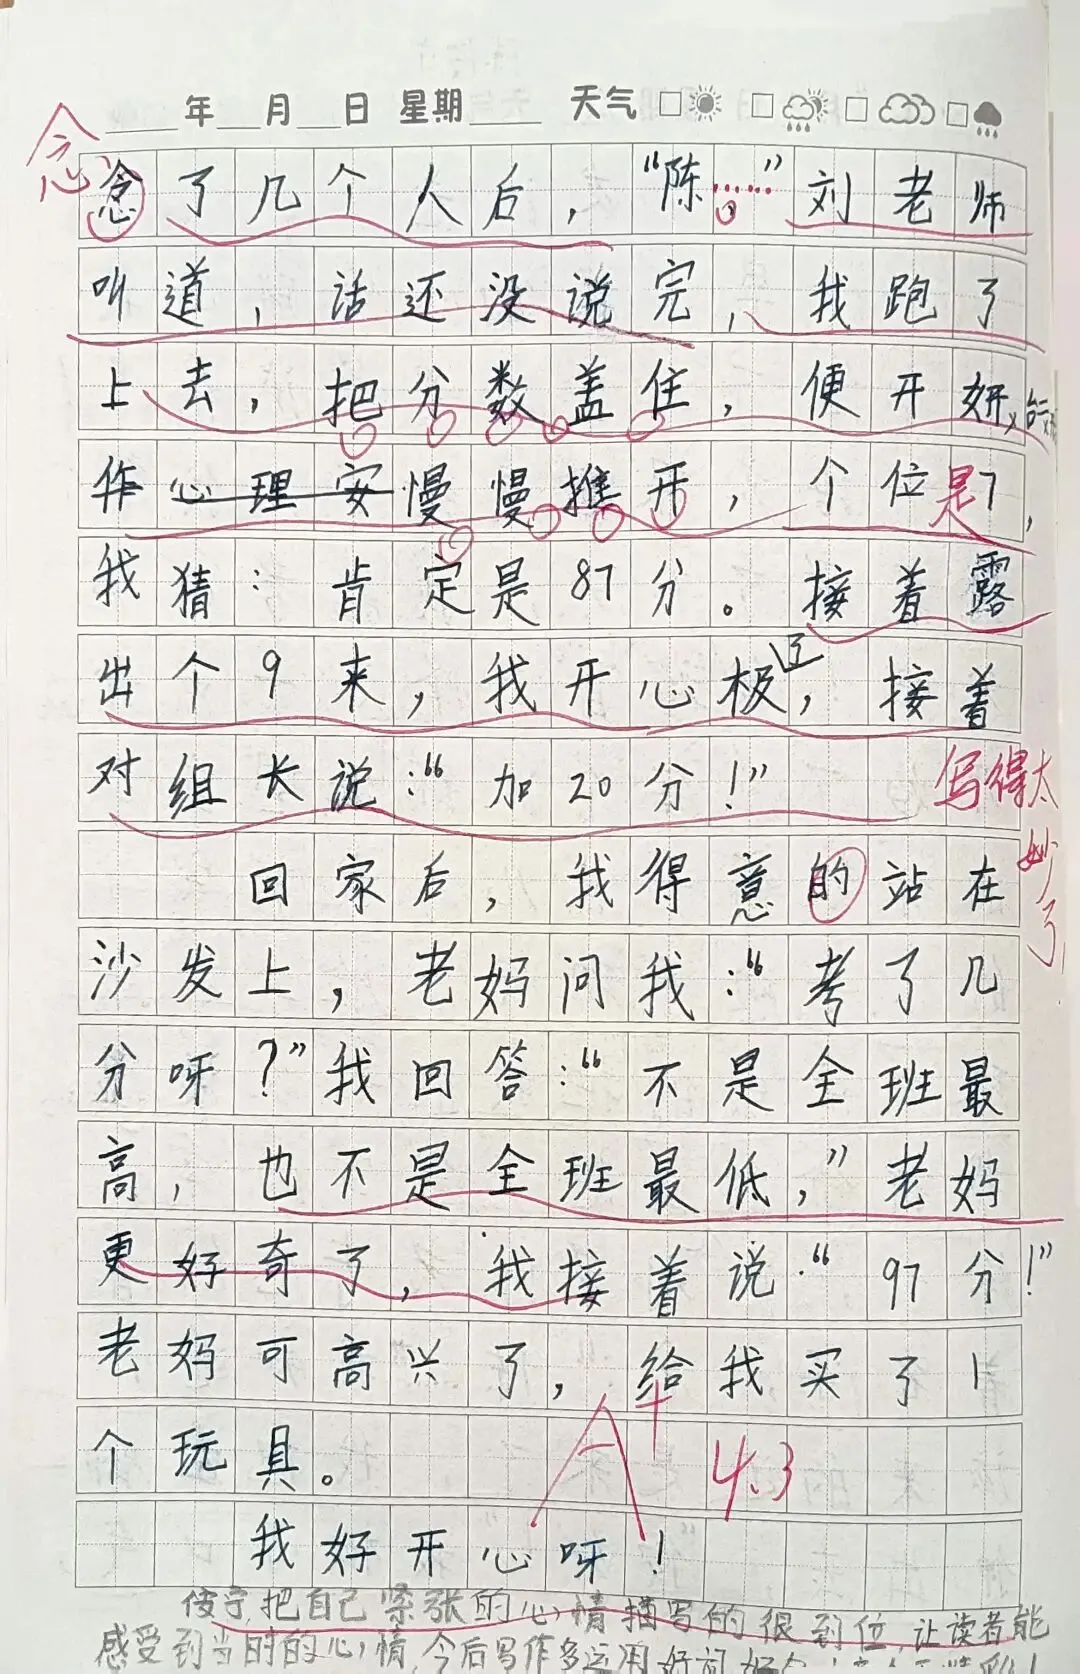 年 月 日 星期 天气
念
念了几个人后，“陈……”刘老师
叫道，话还没说完，我跑了
上去，把分数盖住，便开始
作心理安慢慢推开，个位是7，
我猜：肯定是87分。接着露
出个9来，我开心极了，接着
对组长说：“加20分！”
写得太
妙了
回家后，我得意的站在
沙发上，老妈问我：“考了几
分呀？”我回答：“不是全班最
高，也不是全班最低，”老妈
更好奇了，我接着说：“97分！”
老妈可高兴了，给我买了1
个玩具。
A+ 4.3
我好开心呀！
把自己紧张的心情描写的很到位，让读者能
感受到当时的心情，今后写作多运用好词好句